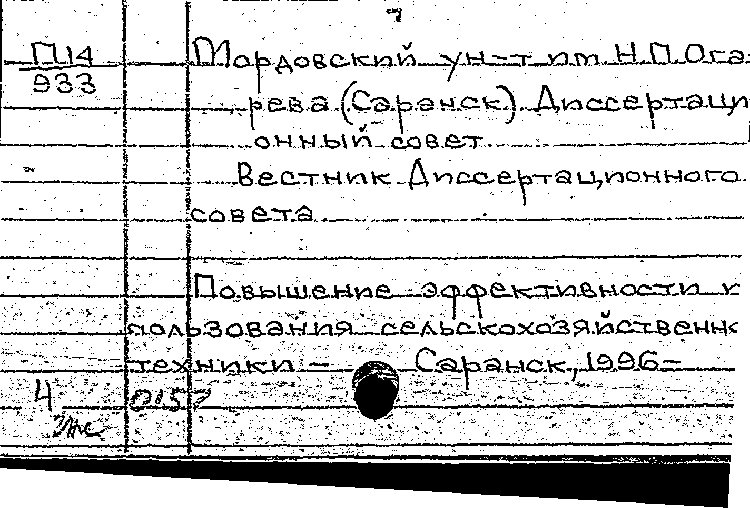 П14
933
Мордовский ун-т им. Н.П.Ога-
рева (Саранск). Диссертаци
онный совет.
Вестник Диссертационного
совета.
Повышение эффективности и
пользования сельскохозяйственно
техники — Саранск, 1996—
4 0157